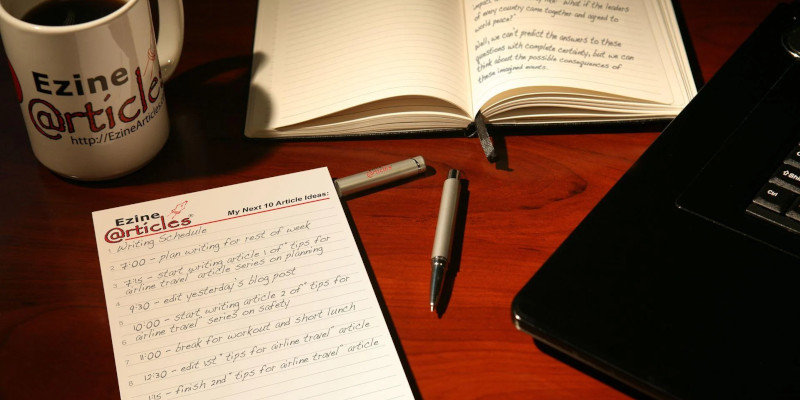 Ezine
@rticles
http://EzineArticles
What if the leaders
of every country came together and agreed to
world peace?"
Well, we can't predict the answers to these
questions with complete certainty, but we can
think about the possible consequences of
these imagined events.
Ezine
@rticles
My Next 10 Article Ideas:
1. Writing Schedule
2. 7:00 - plan writing for rest of week
3. 7:15 - start writing article 1 of "tips for
airline travel" article series on planning
4. 9:30 - edit yesterday's blog post
5. 10:00 - start writing article 2 of "tips for
6. airline travel" series on safety
7. 11:00 - break for workout and short lunch
8. 12:30 - edit 1st "tips for airline travel" article
1:15 - finish 2nd "tips for airline travel" article
Shift
Ctrl